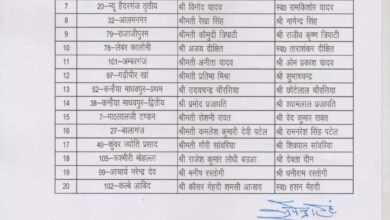 7 20-न्यू हैदरगंज तृतीय श्री विनोद यादव स्व0 रामकिशोर यादव
8 32-आलमनगर श्रीमती रेखा सिंह श्री नागेन्द्र सिंह
9 79-राजाजीपुरम श्रीमती कौमुदी त्रिपाठी श्री राजीव कृष्ण त्रिपाठी
10 78-लेबर कालोनी श्री अजय दीक्षित स्व0 ताराशंकर दीक्षित
11 101-अम्बरगंज श्रीमती अनीता यादव श्री ओम प्रकाश यादव
12 97-गढ़ीपीर खां श्रीमती प्रतिमा मिश्रा श्री सुभाषचन्द्र
13 52-कन्हैया माधवपुर-प्रथम श्री उदयचन्द चौरसिया श्री छोटेलाल चौरसिया
14 38-कन्हैया माधवपुर-द्वितीय श्री प्रमोद प्रजापति श्री श्यामलाल प्रजापति
15 7-मा0लालजी टण्डन श्रीमती रोशनी रावत श्री वेद कुमार रावत
16 27-बालागंज श्रीमती कमलेश कुमारी देवी पटेल श्री रामनरेश सिंह पटेल
17 40-कुंवर ज्योति प्रसाद श्रीमती गौरी सांवरिया श्री शिवपाल सांवरिया
18 105-कश्मीरी मोहल्ला श्री राजेश कुमार लोधी बउआ श्री देवता दीन
19 99-आचार्य नरेन्द्र देव श्री मनीष रस्तोगी श्री घनीराम रस्तोगी
20 102-कल्बे आबिद श्री कौसर मेहदी शमसी आजाद स्व0 हसन मेहदी